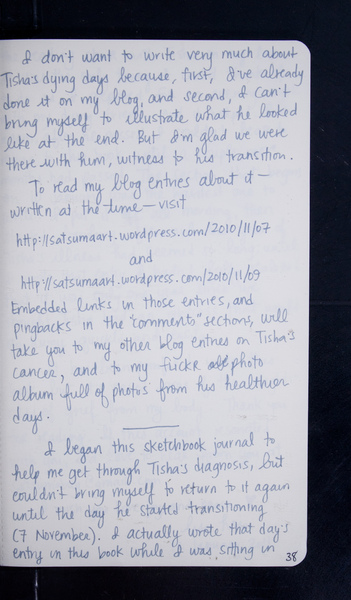 I don't want to write very much about
Tisha's dying days because, first, I've already
done it on my blog, and second, I can't
bring myself to illustrate what he looked
like at the end. But I'm glad we were
there with him, witness to his transition.
To read my blog entries about it—
written at the time—visit
http://satsumaart.wordpress.com/2010/11/07
and
http://satsumaart.wordpress.com/2010/11/09
Embedded links in those entries, and
pingbacks in the "comments" sections, will
take you to my other blog entries on Tisha's
cancer, and to my flickr photo
album full of photos from his healthier
days.
I began this sketchbook journal to
help me get through Tisha's diagnosis, but
couldn't bring myself to return to it again
until the day he started transitioning
(7 November). I actually wrote that day's
entry in this book while I was sitting in
38